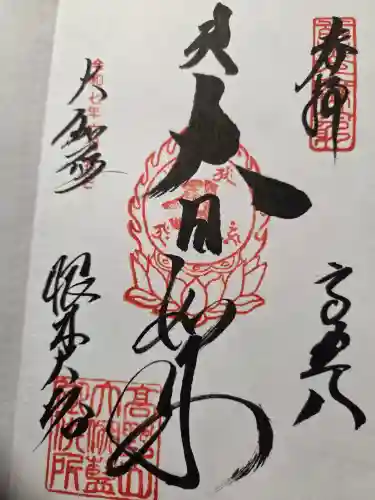 奉拝
高野山
大日如来
令和七年
大伽藍
根本大塔
高野山
大伽藍